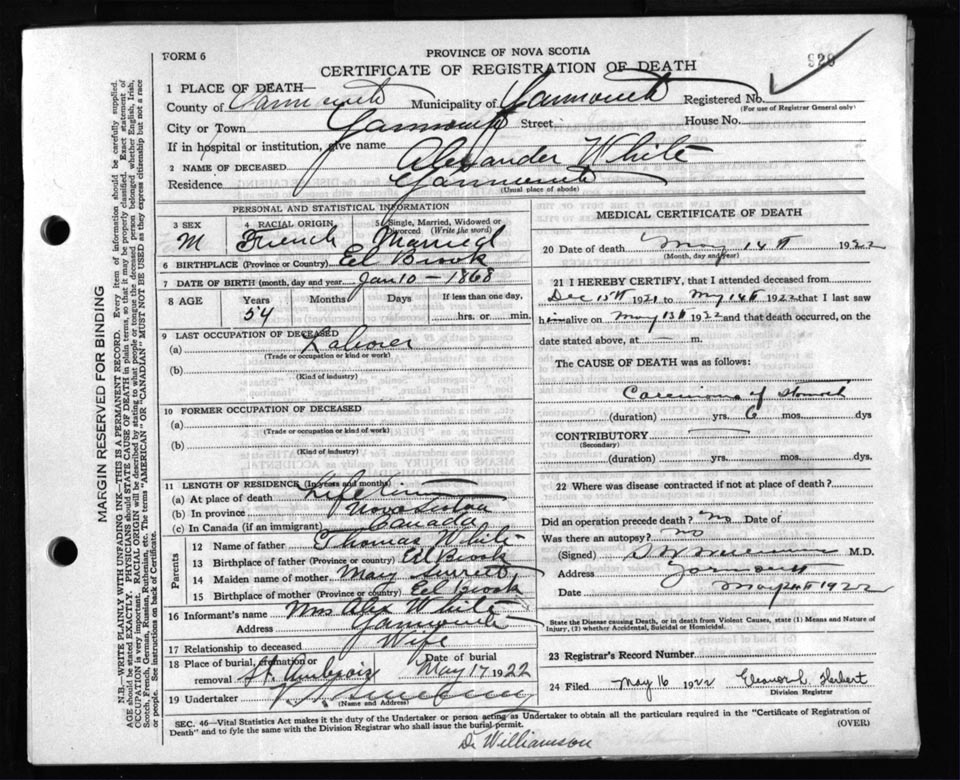 FORM 6
PROVINCE OF NOVA SCOTIA
929
CERTIFICATE OF REGISTRATION OF DEATH
1 PLACE OF DEATH—
County of Yarmouth Municipality of Yarmouth Registered No.
(For use of Registrar General only)
City or Town Yarmouth Street House No.
If in hospital or institution, give name
2 NAME OF DECEASED Alexander White
Residence Yarmouth
(Usual place of abode)
PERSONAL AND STATISTICAL INFORMATION
3 SEX 4 RACIAL ORIGIN 5 Single, Married, Widowed or Divorced (Write the word)
M French Married
6 BIRTHPLACE (Province or Country) Eel Brook
7 DATE OF BIRTH (month, day and year) Jan 10 – 1868
8 AGE Years Months Days If less than one day,
54 hrs. or min.
9 LAST OCCUPATION OF DECEASED
(a) Laborer
(Trade or occupation or kind or work)
(b)
(Kind of industry)
10 FORMER OCCUPATION OF DECEASED
(a)
(Trade or occupation or kind or work)
(b)
(Kind of industry)
11 LENGTH OF RESIDENCE (In years and months)
(a) At place of death Lifetime
(b) In province Nova Scotia
(c) In Canada (if an immigrant) Canada
Parents
12 Name of father Thomas White
13 Birthplace of father (Province or country) Eel Brook
14 Maiden name of mother Mary Surrett
15 Birthplace of mother (Province or country) Eel Brook
16 Informant's name Mrs Alex White
Address Yarmouth
17 Relationship to deceased Wife
18 Place of burial, cremation or removal St. Ambrois Date of burial May 17 1922
19 Undertaker
(Name and Address)
MEDICAL CERTIFICATE OF DEATH
20 Date of death May 14th 1922
(Month, day and year)
21 I HEREBY CERTIFY, that I attended deceased from
Dec 15th 1921 to May 14th 1922 that I last saw
him alive on May 13th 1922 and that death occurred, on the
date stated above, at — m.
The CAUSE OF DEATH was as follows:
Carcinoma of Stomach
(duration) yrs. 6 mos. dys
CONTRIBUTORY
(Secondary)
(duration) yrs. mos. dys
22 Where was disease contracted if not at place of death?
Did an operation precede death? No Date of
Was there an autopsy? No
(Signed) M.D.
Address Yarmouth
Date May 1922
State the Disease causing Death, or in death from Violent Causes, state (1) Means and Nature of
Injury, (2) whether Accidental, Suicidal or Homicidal.
23 Registrar's Record Number
24 Filed May 16 1922 Eleanor L Herbert
Division Registrar
SEC. 46—Vital Statistics Act makes it the duty of the Undertaker or person acting as Undertaker to obtain all the particulars required in the "Certificate of Registration of
Death" and to fyle the same with the Division Registrar who shall issue the burial permit. (OVER)
Dr Williamson
MARGIN RESERVED FOR BINDING
N.B.—WRITE PLAINLY WITH UNFADING INK—THIS IS A PERMANENT RECORD. Every item of information should be carefully supplied.
AGE should be stated EXACTLY. PHYSICIANS should STATE CAUSE OF DEATH in plain terms, so that it may be properly classified. Exact statement of
OCCUPATION is very important. RACIAL ORIGIN will be described by stating to what people or tongue the deceased person belonged whether English, Irish,
Scotch, French, German, Russian, Ruthenian, etc. The terms "AMERICAN" OR "CANADIAN" MUST NOT BE USED as they express citizenship but not a race
or people. See instructions on back of Certificate.